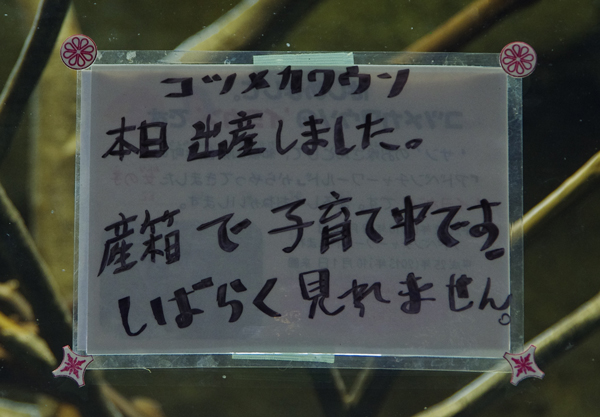 コツメカワウソ
本日 出産しました。
産箱 で 子育て中です。
しばらく 見れません。